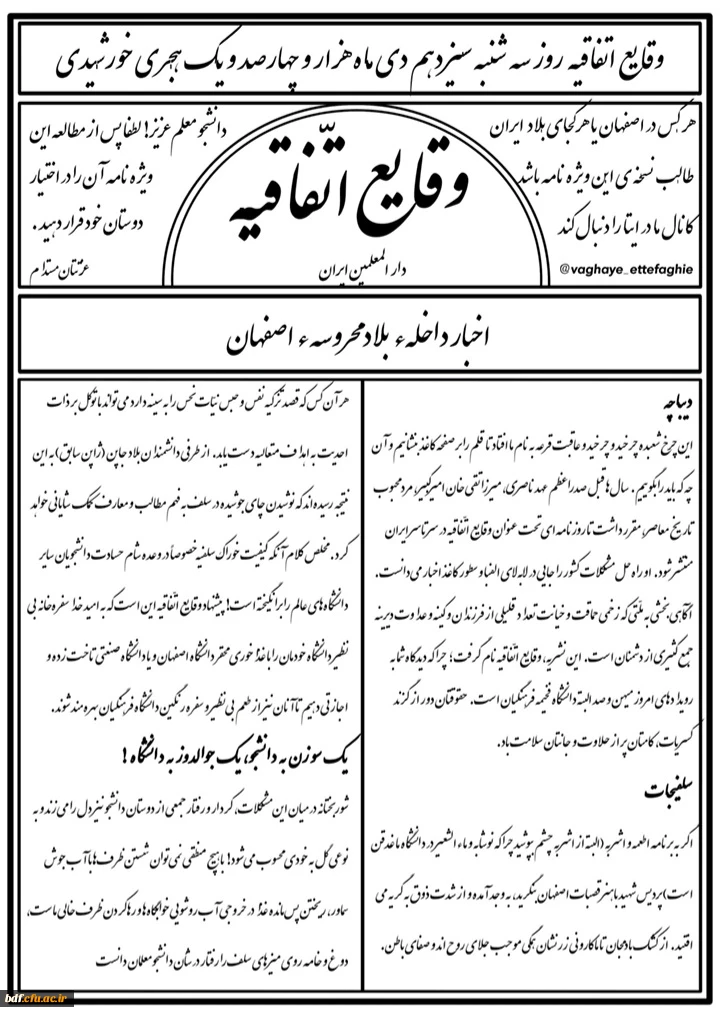 وقایع اتفاقیه روز سه شنبه سیزدهم دی ماه هزار و چهارصد و یک هجری خورشیدی
هر کس در اصفهان یا هر کجای بلاد ایران
طالب نسخه‌ی این ویژه نامه باشد
کانال ما در ایتا را دنبال کند
@vaghaye_ettefaghie
وقایع اتّفاقیه
دار المعلمین ایران
دانشجو معلم عزیز! لطفا پس از مطالعه این
ویژه نامه آن را در اختیار
دوستان خود قرار دهید.
عزتتان مستدام
اخبار داخلهء بلاد محروسهء اصفهان
دیباچه
این چرخ شعبده چرخید و چرخید و عاقبت قرعه به نام ما افتاد تا قلم را بر صفحه کاغذ بنشانیم و آن
چه که باید را بگوییم. سال ها قبل صدراعظم عهد ناصری، میرزا تقی خان امیرکبیر، مرد محبوب
تاریخ معاصر، مقرر داشت تا روزنامه ای تحت عنوان وقایع اتّفاقیه در سرتاسر ایران
منتشر شود. او راه حل مشکلات کشور را جایی در لابه لای الفبا و سطور کاغذ اخبار می دانست.
آگاهی بخشی به ملتی که زخمی حماقت و خیانت تعداد قلیلی از فرزندان و کینه و عداوت دیرینه
جمع کثیری از دشمنان است. این نشریه، وقایع اتّفاقیه نام گرفت؛ چرا که دیدگاه شما به
رویدادهای امروز میهن و صد البته دانشگاه فخیمه فرهنگیان است. حقوقتان دور از گزند
کسریات، کامتان پر از حلاوت و جانتان سلامت باد.
سلفیجات
اگر به برنامه اطعمه و اشربه (البته از اشربه چشم بپوشید چرا که نوشابه و ماء الشعیر در دانشگاه ما غدقن
است) پردیس شهید باهنر قصبات اصفهان بنگرید، به وجد آمده و از شدت ذوق به گریه می
افتید. از کشک بادمجان تا ماکارونی زرنشان همگی موجب جلای روح اند و صفای باطن.
هر آن کس که قصد تزکیه نفس و حبس نیات نحس را به سینه دارد می تواند با توکل بر ذات
احدیت به اهداف متعالیه دست یابد. از طرفی دانشمندان بلاد جاپن (ژاپن سابق) به این
نتیجه رسیده اند که نوشیدن چای جوشیده در سلف به فهم مطالب و معارف کمک شایانی خواهد
کرد. مخلص کلام آنکه کیفیت خوراک سلفیه خصوصاً در وعده شام حسادت دانشجویان سایر
دانشگاه های عالم را برانگیخته است! پیشنهاد وقایع اتّفاقیه این است که به امید خدا سفره خانه بی
نظیر دانشگاه خودمان را با غذا خوری محقر دانشگاه اصفهان و یا دانشگاه صنعتی تاخت زده و
اجازتی دهیم تا آنان نیز از طعم بی نظیر و سفره رنگین دانشگاه فرهنگیان بهره مند شوند.
یک سوزن به دانشجو، یک جوالدوز به دانشگاه!
شوربختانه در میان این مشکلات، کردار و رفتار جمعی از دوستان دانشجو نیز دل را می زند و به
نوعی گل به خودی محسوب می شود! با هیچ منطقی نمی توان شستن ظرف ها با آب جوش
سماور، ریختن پس مانده غذا در خروجی آب روشویی خوابگاه ها و رها کردن ظرف خالی ماست،
دوغ و خامه روی میزهای سلف را رفتار در شان دانشجو معلمان دانست
bdf.cfu.ac.ir